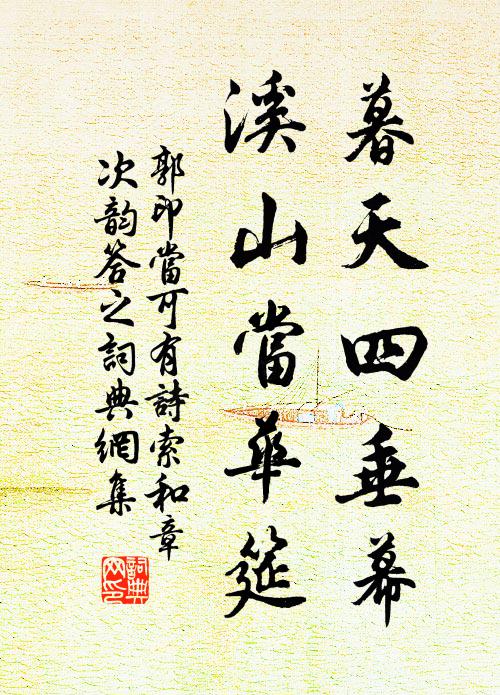 暮天四垂幕
溪山當華筵
郭印當可有詩索和章
次韵答之詞典網集
詞典网印